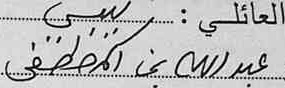 العائلي : ليبي
عبد الله بن المصطفى